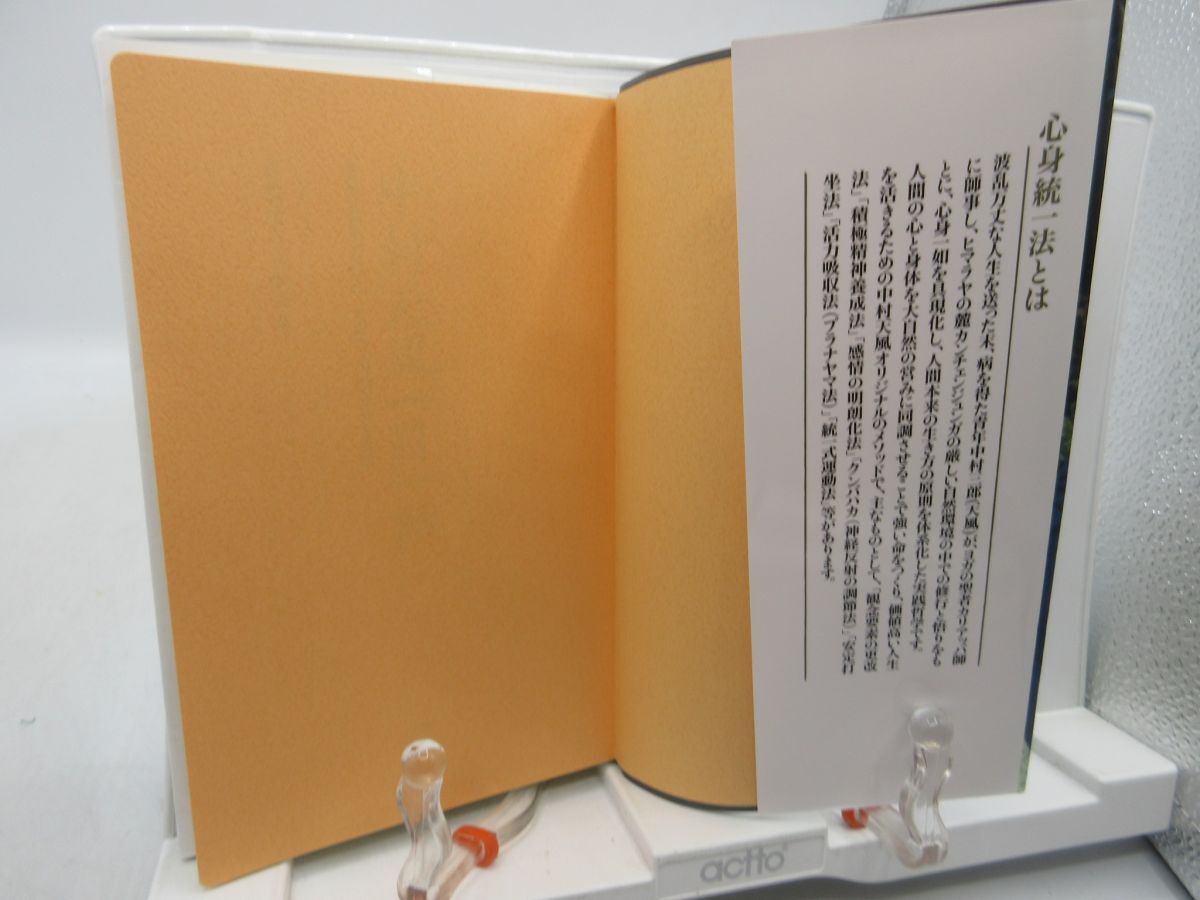 心身統一法とは
波乱万丈な人生を送った末、病を得た青年中村三郎(天風)が、ヨガの聖者カリアッパ師
に師事し、ヒマラヤの麓カンチェンジュンガの厳しい自然環境の中での修行と悟りをも
とに、心身一如を具現化し、人間本来の生き方の原則を体系化した実践哲学です。
人間の心と身体を大自然の営みに同調させることで強い命をつくり、価値高い人生
を活きるための中村天風オリジナルのメソッドで、主なものとして、「観念要素の更改
法」「積極精神養成法」「感情の明朗化法」「クンバハカ(神経反射の調節法)」「安定打
坐法」「活力吸収法(プラナヤマ法)」「統一式運動法」等があります。
actto